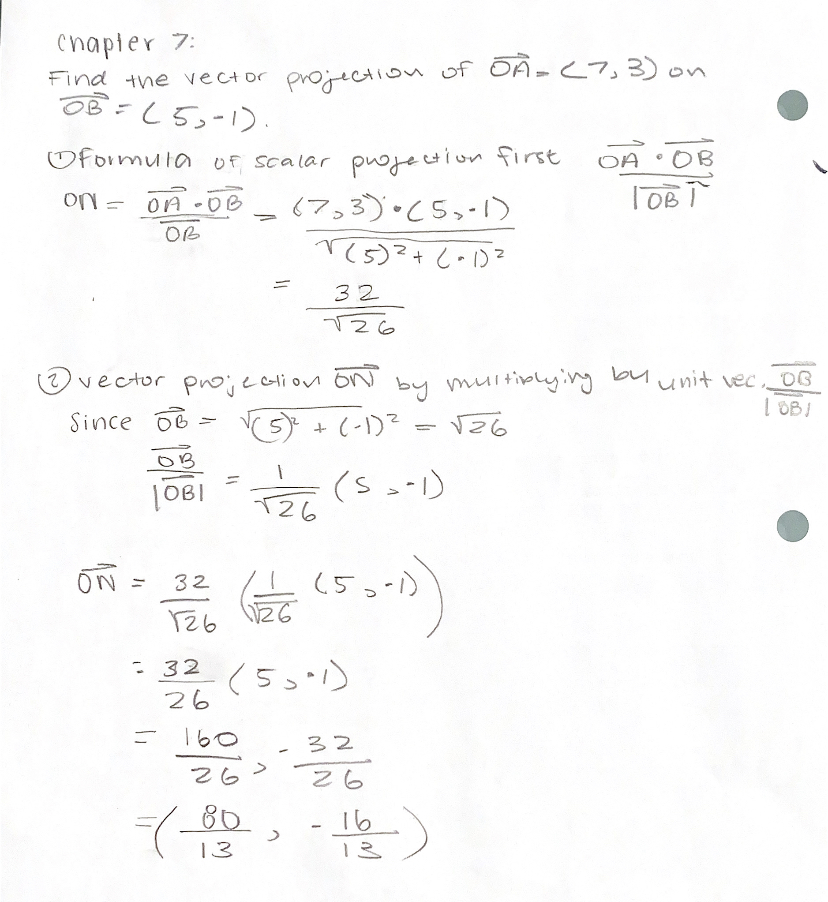 Chapter 7:
Find the vector projection of \overrightarrow{OA} = (7, 3) on
\overrightarrow{OB} = (5, -1).
① Formula of scalar projection first \frac{\overrightarrow{OA} \cdot \overrightarrow{OB}}{|\overrightarrow{OB}|}
ON = \frac{\overrightarrow{OA} \cdot \overrightarrow{OB}}{\overline{OB}} = \frac{(7, 3) \cdot (5, -1)}{\sqrt{(5)^2 + (-1)^2}}
= \frac{32}{\sqrt{26}}
② vector projection \overrightarrow{ON} by multiplying by unit vec. \frac{\overrightarrow{OB}}{|\overrightarrow{OB}|}
Since \overrightarrow{OB} = \sqrt{(5)^2 + (-1)^2} = \sqrt{26}
\frac{\overrightarrow{OB}}{|\overrightarrow{OB}|} = \frac{1}{\sqrt{26}} (5, -1)
\overrightarrow{ON} = \frac{32}{\sqrt{26}} \left( \frac{1}{\sqrt{26}} (5, -1) \right)
= \frac{32}{26} (5, -1)
= \frac{160}{26}, -\frac{32}{26}
= \left( \frac{80}{13}, -\frac{16}{13} \right)